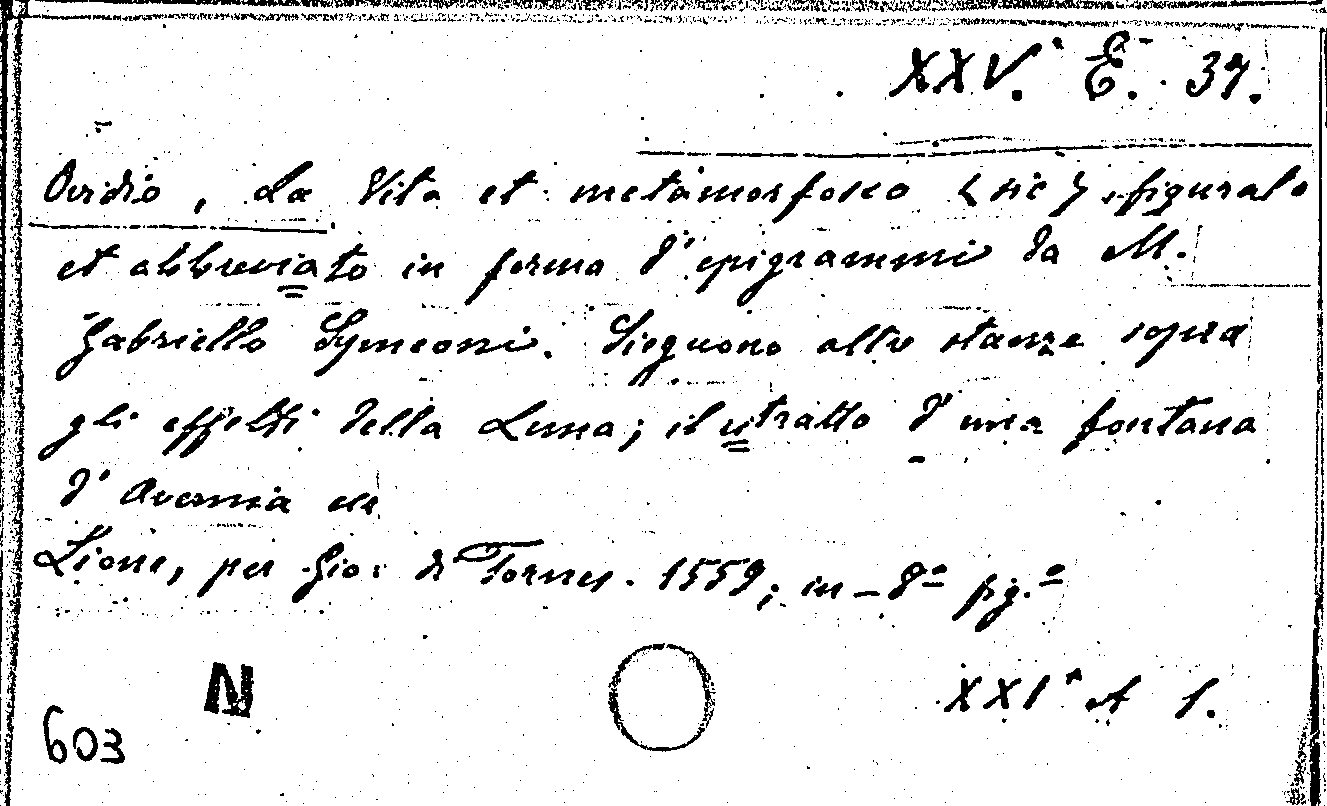 XXV. E. 37.
Ovidio, La Vita et metamorfoseo (sic) figurato
et abbreviato in forma d'epigrammi da M.
Gabriello Symeoni. Sieguono altre stanze sopra
gli effetti della Luna; il ritratto d'una fontana
d'Overnia etc
Lione, per Gio: di Tornes. 1559; in-8º fig.º
XXI A 1.
N
603